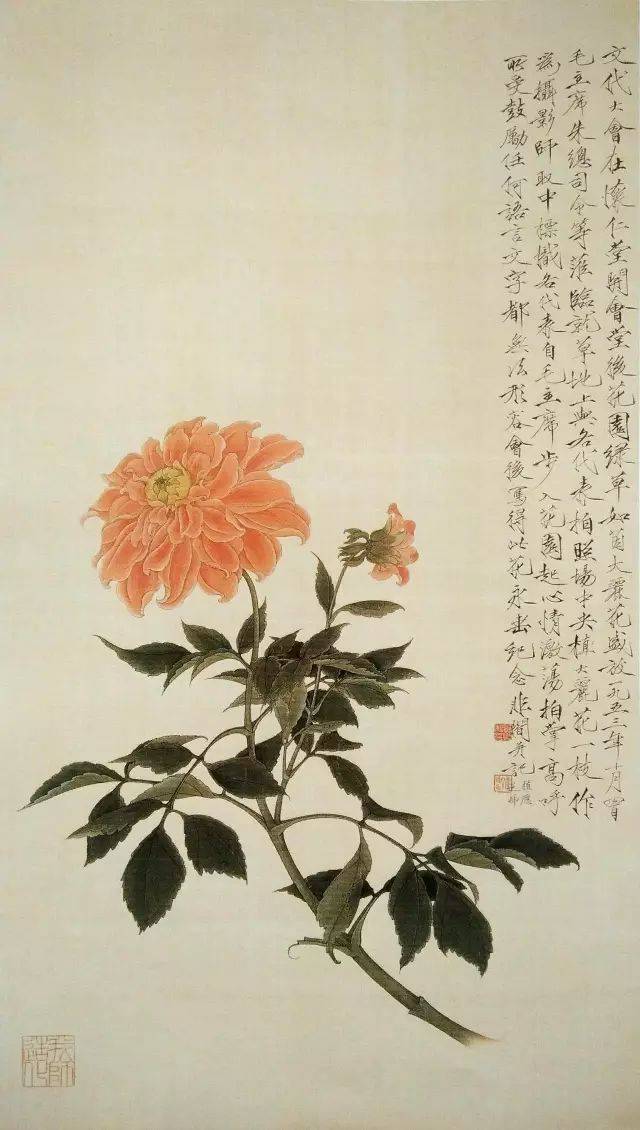 文代大會在懷仁堂開會堂後花園綠草如茵大麗花盛放一九五三年十月
毛主席朱總司令等蒞臨就草地上與各代表拍照場中央植大麗花一枝作
為攝影師取中標幟各代表自毛主席步入花園起心情激蕩拍掌高呼
所受鼓勵任何語言文字都無法形容會後寫得此花永紀念 非闇并記
我師造化